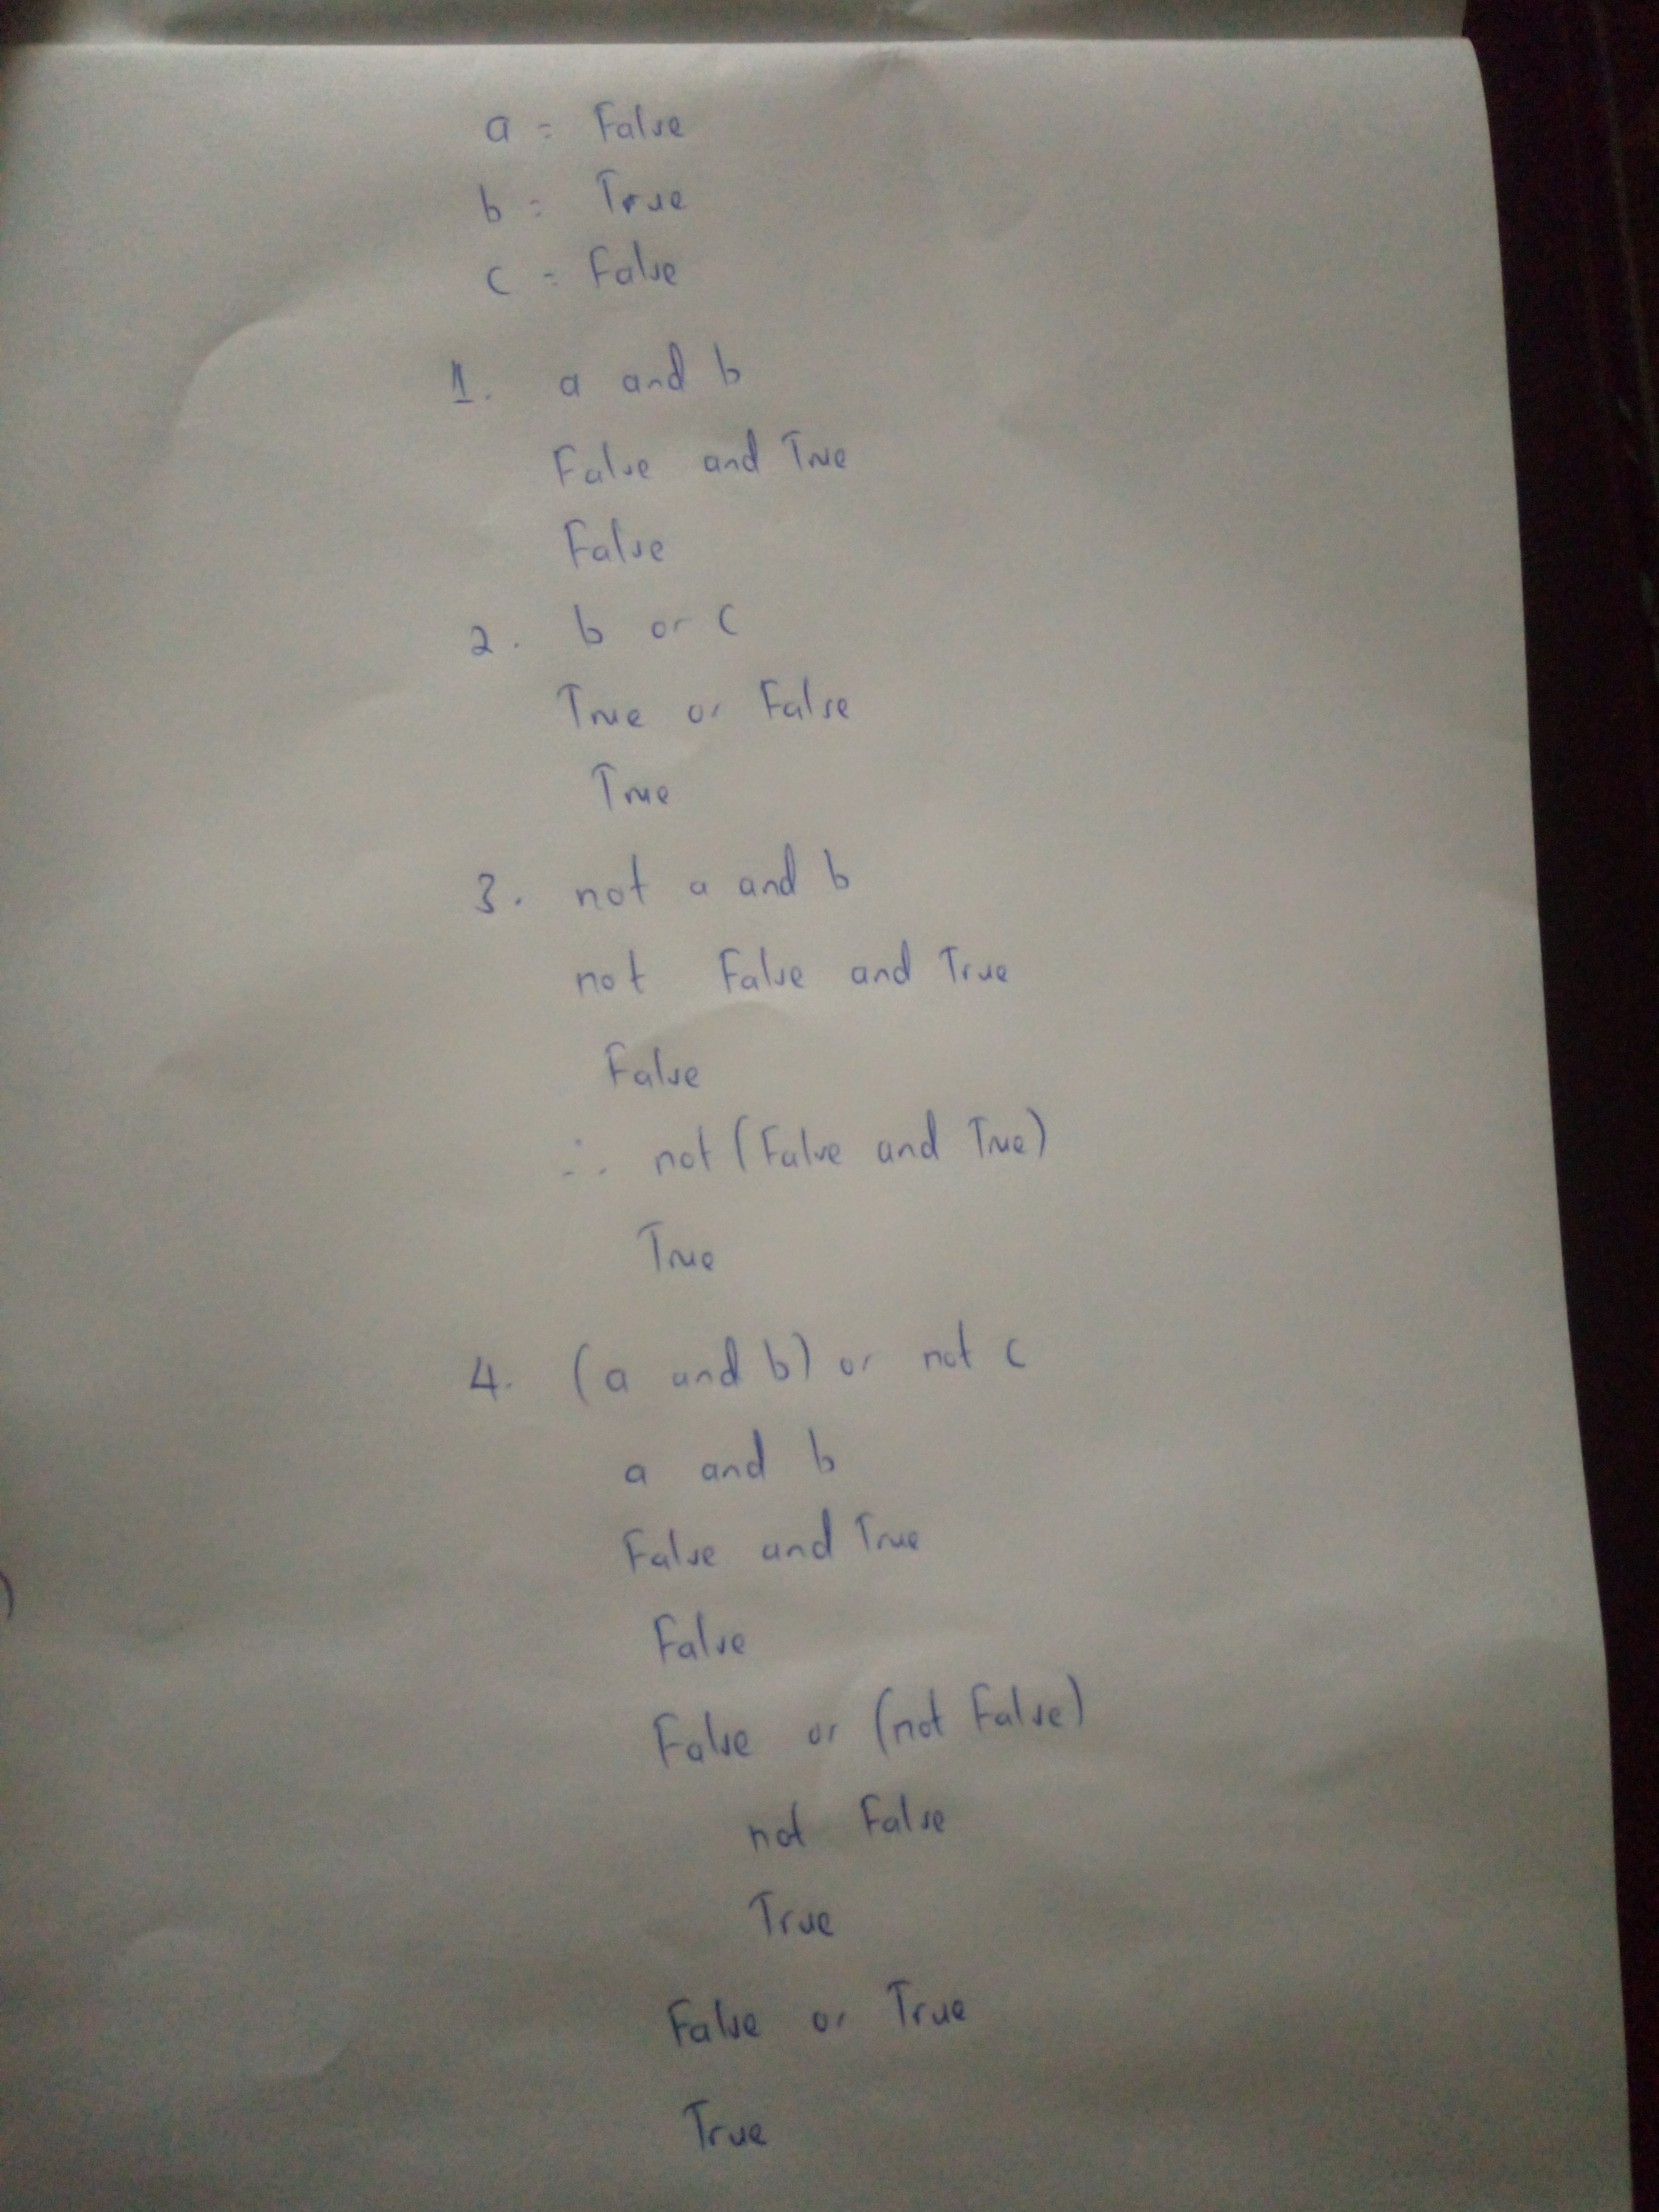 a = False
b = True
c = False
1. a and b
False and True
False
2. b or c
True or False
True
3. not a and b
not False and True
False
∴ not (False and True)
True
4. (a and b) or not c
a and b
False and True
False
False or (not False)
not False
True
False or True
True